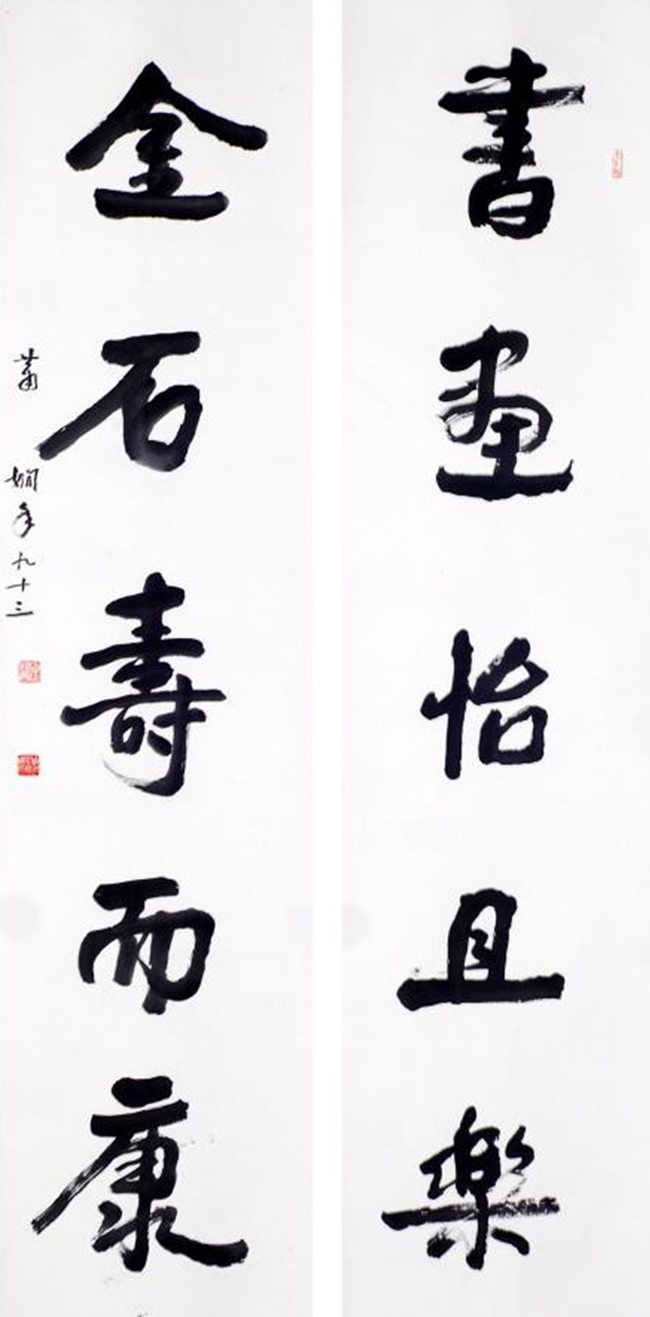 書畫怡且樂
金石壽而康
蕭嫻年九十三